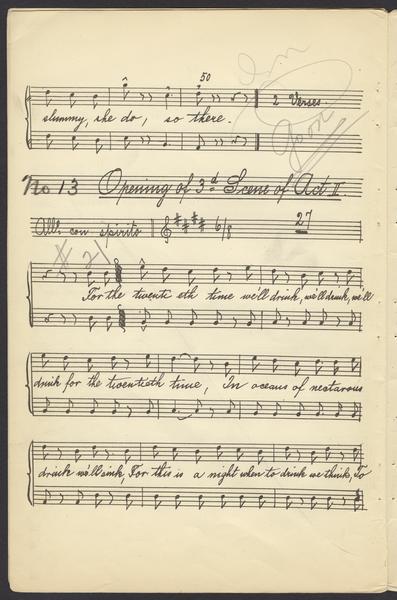 50
2 Verses.
slummy, she do, so there.
No 13 Opening of 3d Scene of Act II
All. con spirito 6/8 27
For the twenti eth time we'll drink, we'll drink, we'll
drink for the twentieth time, In oceans of nectarous
drink we'll sink, For this is a night when to drink we think, To